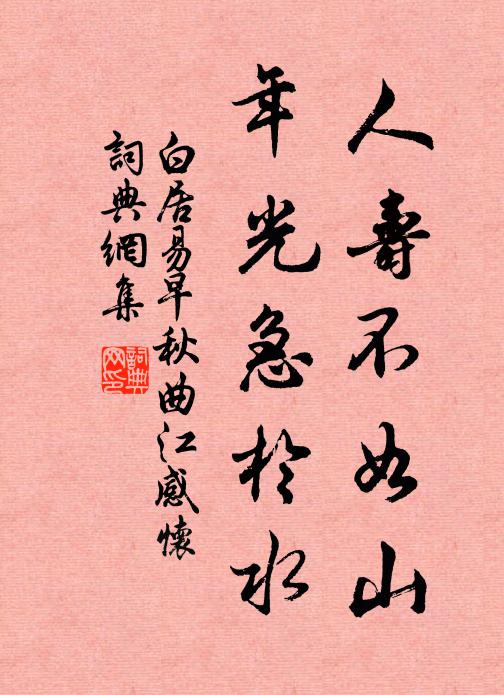 人壽不如山
年光急於水
白居易早秋曲江感懷
詞典網集
詞典網印